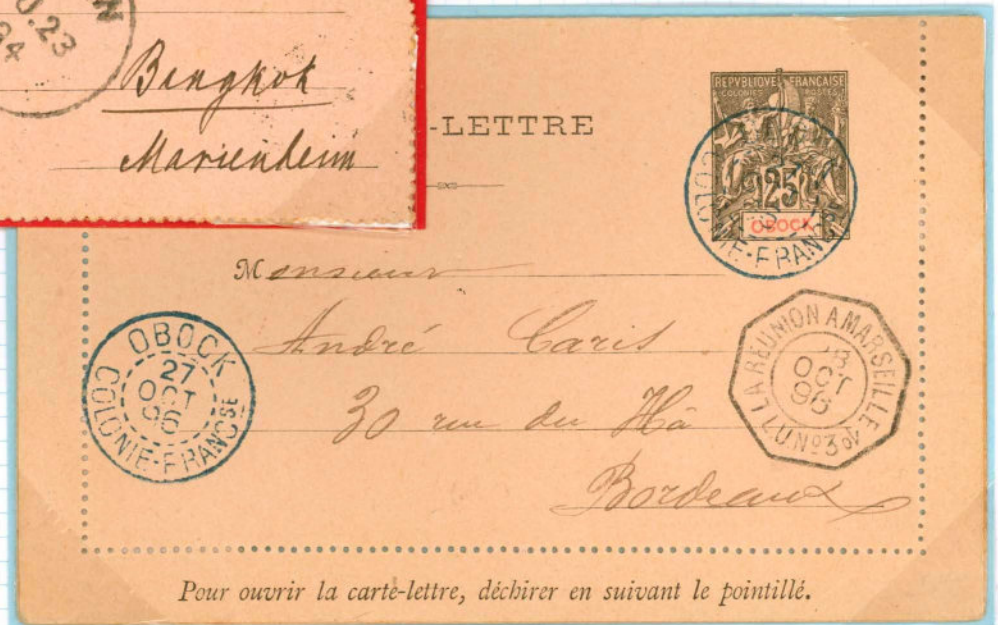 N
U.23
94
Bangkok
Marienheim
-LETTRE
REPUBLIQUE FRANÇAISE
COLONIES POSTES
25
OBOCK
COLONIE-FRANÇSE
Monsieur
André Caris
30 rue du Hâ
Bordeaux
OBOCK
27
OCT
96
COLONIE-FRANÇSE
LA REUNION A MARSEILLE
OCT
96
L U Nº3
Pour ouvrir la carte-lettre, déchirer en suivant le pointillé.